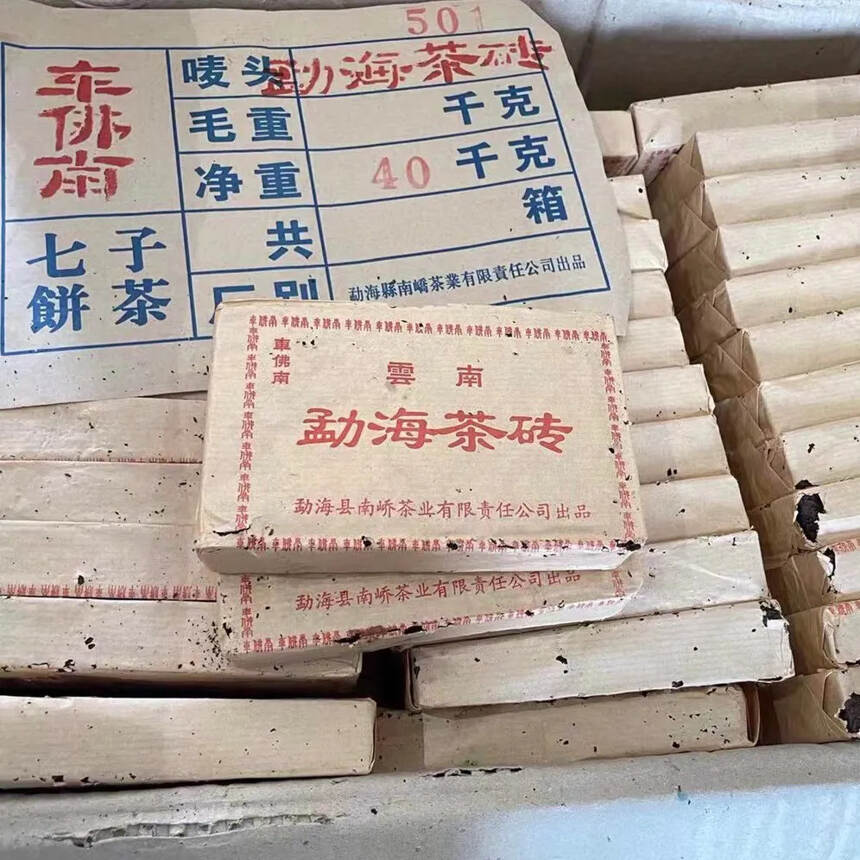 501
車佛南
唛头 勐海茶砖
毛重 千克
净重 40 千克
七子餅茶
共 箱
厂别 勐海縣南嶠茶業有限責任公司出品
車佛南
雲南
勐海茶砖
勐海县南峤茶业有限责任公司出品
勐海县南峤茶业有限责任公司出品